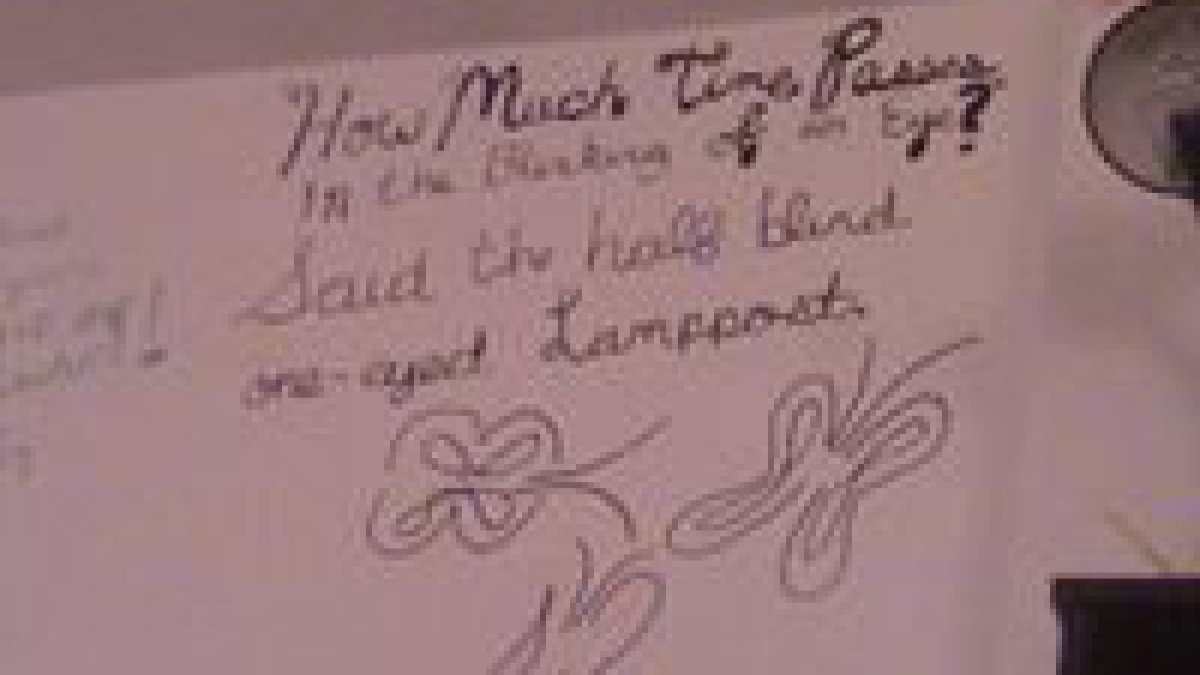 How Much Time Passes
in the blinking of an Eye?
Said the half blind
one-eyed Lamppost.